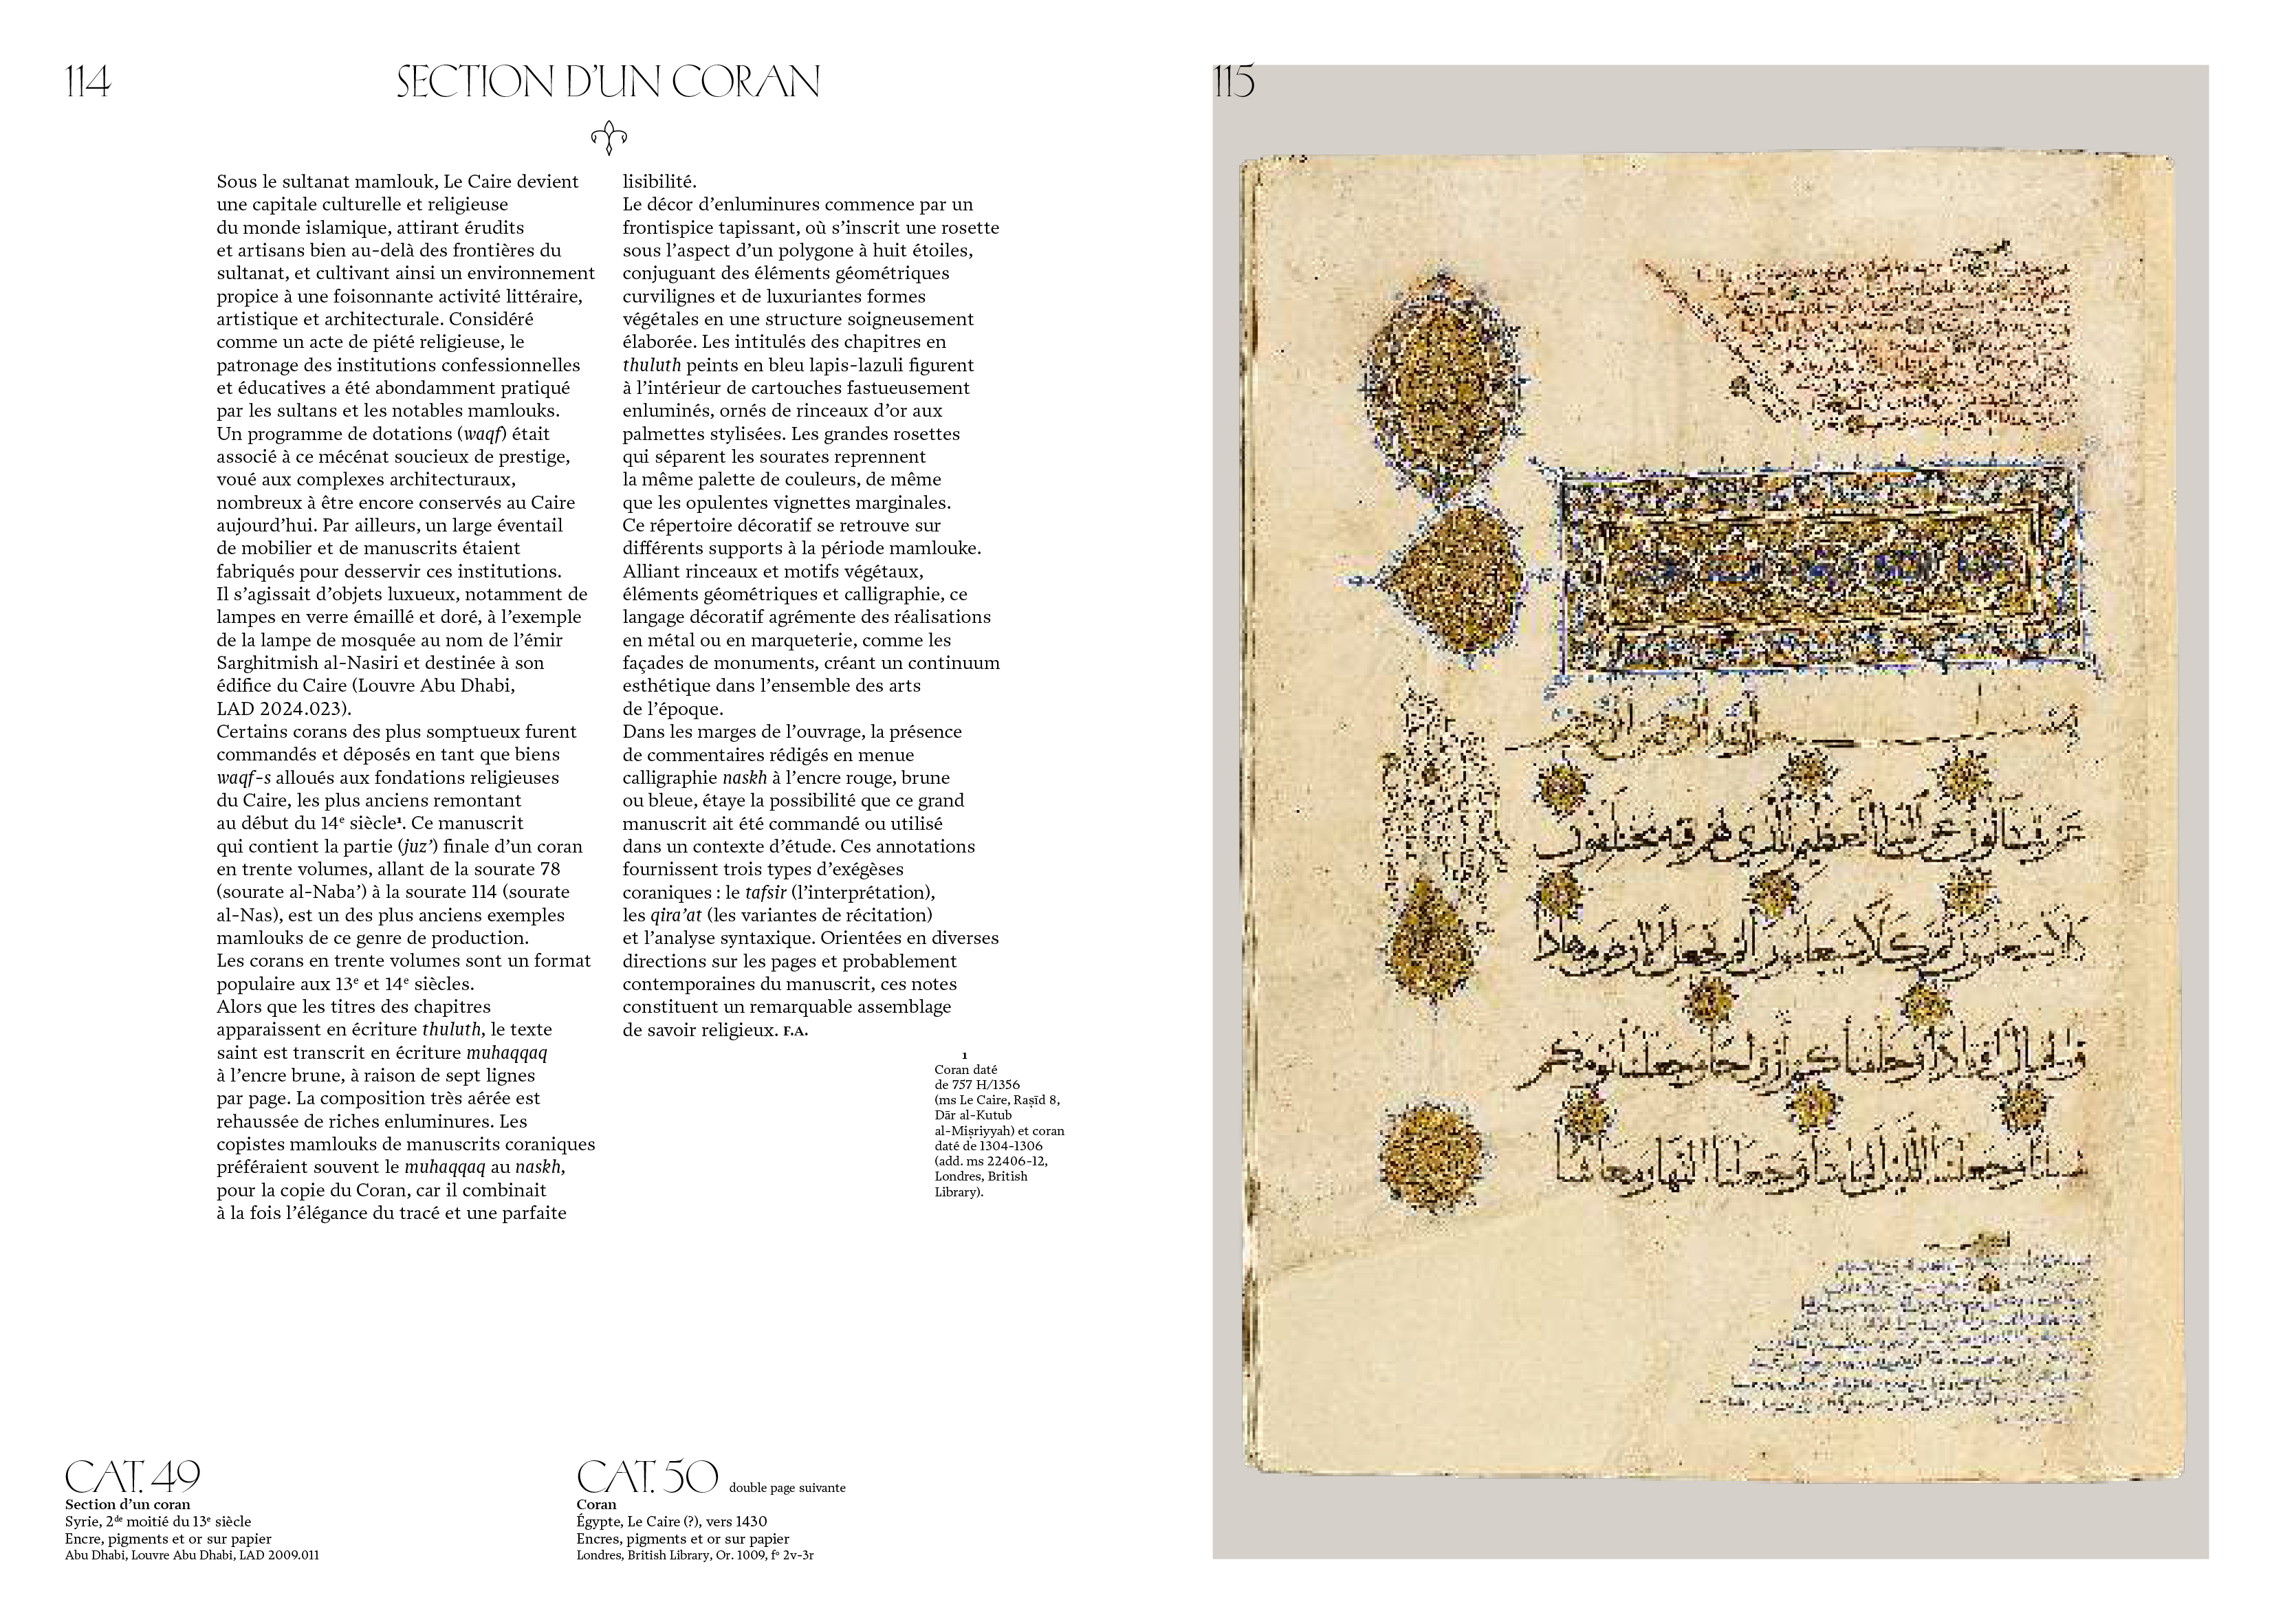 114
SECTION D'UN CORAN
Sous le sultanat mamlouk, Le Caire devient
une capitale culturelle et religieuse
du monde islamique, attirant érudits
et artisans bien au-delà des frontières du
sultanat, et cultivant ainsi un environnement
propice à une foisonnante activité littéraire,
artistique et architecturale. Considéré
comme un acte de piété religieuse, le
patronage des institutions confessionnelles
et éducatives a été abondamment pratiqué
par les sultans et les notables mamlouks.
Un programme de dotations (waqf) était
associé à ce mécénat soucieux de prestige,
voué aux complexes architecturaux,
nombreux à être encore conservés au Caire
aujourd'hui. Par ailleurs, un large éventail
de mobilier et de manuscrits étaient
fabriqués pour desservir ces institutions.
Il s'agissait d'objets luxueux, notamment de
lampes en verre émaillé et doré, à l'exemple
de la lampe de mosquée au nom de l'émir
Sarghitmish al-Nasiri et destinée à son
édifice du Caire (Louvre Abu Dhabi,
LAD 2024.023).
Certains corans des plus somptueux furent
commandés et déposés en tant que biens
waqf-s alloués aux fondations religieuses
du Caire, les plus anciens remontant
au début du 14e siècle¹. Ce manuscrit
qui contient la partie (juz') finale d'un coran
en trente volumes, allant de la sourate 78
(sourate al-Naba') à la sourate 114 (sourate
al-Nas), est un des plus anciens exemples
mamlouks de ce genre de production.
Les corans en trente volumes sont un format
populaire aux 13e et 14e siècles.
Alors que les titres des chapitres
apparaissent en écriture thuluth, le texte
saint est transcrit en écriture muhaqqaq
à l'encre brune, à raison de sept lignes
par page. La composition très aérée est
rehaussée de riches enluminures. Les
copistes mamlouks de manuscrits coraniques
préféraient souvent le muhaqqaq au naskh,
pour la copie du Coran, car il combinait
à la fois l'élégance du tracé et une parfaite
lisibilité.
Le décor d'enluminures commence par un
frontispice tapissant, où s'inscrit une rosette
sous l'aspect d'un polygone à huit étoiles,
conjuguant des éléments géométriques
curvilignes et de luxuriantes formes
végétales en une structure soigneusement
élaborée. Les intitulés des chapitres en
thuluth peints en bleu lapis-lazuli figurent
à l'intérieur de cartouches fastueusement
enluminés, ornés de rinceaux d'or aux
palmettes stylisées. Les grandes rosettes
qui séparent les sourates reprennent
la même palette de couleurs, de même
que les opulentes vignettes marginales.
Ce répertoire décoratif se retrouve sur
différents supports à la période mamlouke.
Alliant rinceaux et motifs végétaux,
éléments géométriques et calligraphie, ce
langage décoratif agrémente des réalisations
en métal ou en marqueterie, comme les
façades de monuments, créant un continuum
esthétique dans l'ensemble des arts
de l'époque.
Dans les marges de l'ouvrage, la présence
de commentaires rédigés en menue
calligraphie naskh à l'encre rouge, brune
ou bleue, étaye la possibilité que ce grand
manuscrit ait été commandé ou utilisé
dans un contexte d'étude. Ces annotations
fournissent trois types d'exégèses
coraniques : le tafsir (l'interprétation),
les qira'at (les variantes de récitation)
et l'analyse syntaxique. Orientées en diverses
directions sur les pages et probablement
contemporaines du manuscrit, ces notes
constituent un remarquable assemblage
de savoir religieux. F.A.
1
Coran daté
de 757 H/1356
(ms Le Caire, Raṣīd 8,
Dār al-Kutub
al-Miṣriyyah) et coran
daté de 1304-1306
(add. ms 22406-12,
Londres, British
Library).
CAT. 49
Section d'un coran
Syrie, 2de moitié du 13e siècle
Encre, pigments et or sur papier
Abu Dhabi, Louvre Abu Dhabi, LAD 2009.011
CAT. 50 double page suivante
Coran
Égypte, Le Caire (?), vers 1430
Encres, pigments et or sur papier
Londres, British Library, Or. 1009, fo 2v-3r
115
بسم الله الرحمن الرحيم
عم يتسالون عن النبا العظيم الذي هم فيه مختلفون
كلا سيعلمون ثم كلا سيعلمون الم نجعل الارض مهادا
والجبال اوتادا وخلقناكم ازواجا وجعلنا نومكم
سباتا وجعلنا الليل لباسا وجعلنا النهار معاشا